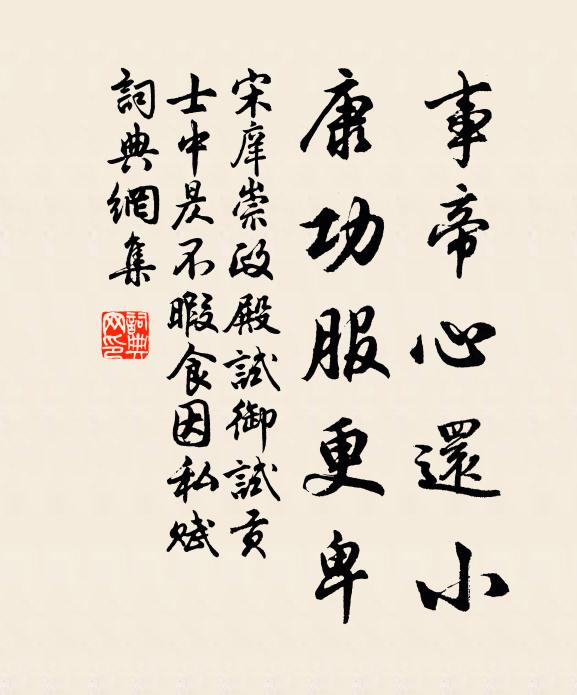 事帝心還小
康功服更卑
宋庠崇政殿試御試貢
士中昃不暇食因私賦
詞典網集
詞典網印